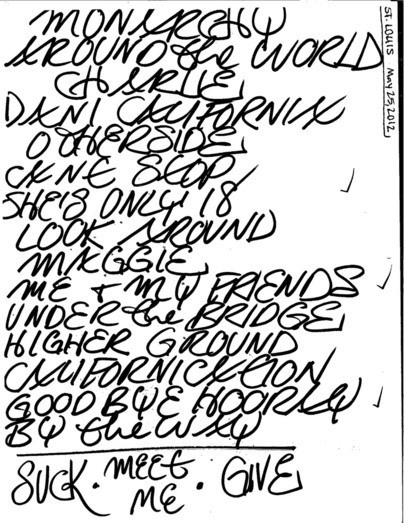 ST. LOUIS MAY 25, 2012
MONARCHY
AROUND the WORLD
CHARLIE
DANI CALIFORNIA
OTHERSIDE
CANE STOP
SHE'S ONLY 18
LOOK AROUND
MAGGIE
ME + MY FRIENDS
UNDER the BRIDGE
HIGHER GROUND
CALIFORNICATION
GOODBYE HOORAY
BY the WAY
SUCK · MEET ME · GIVE